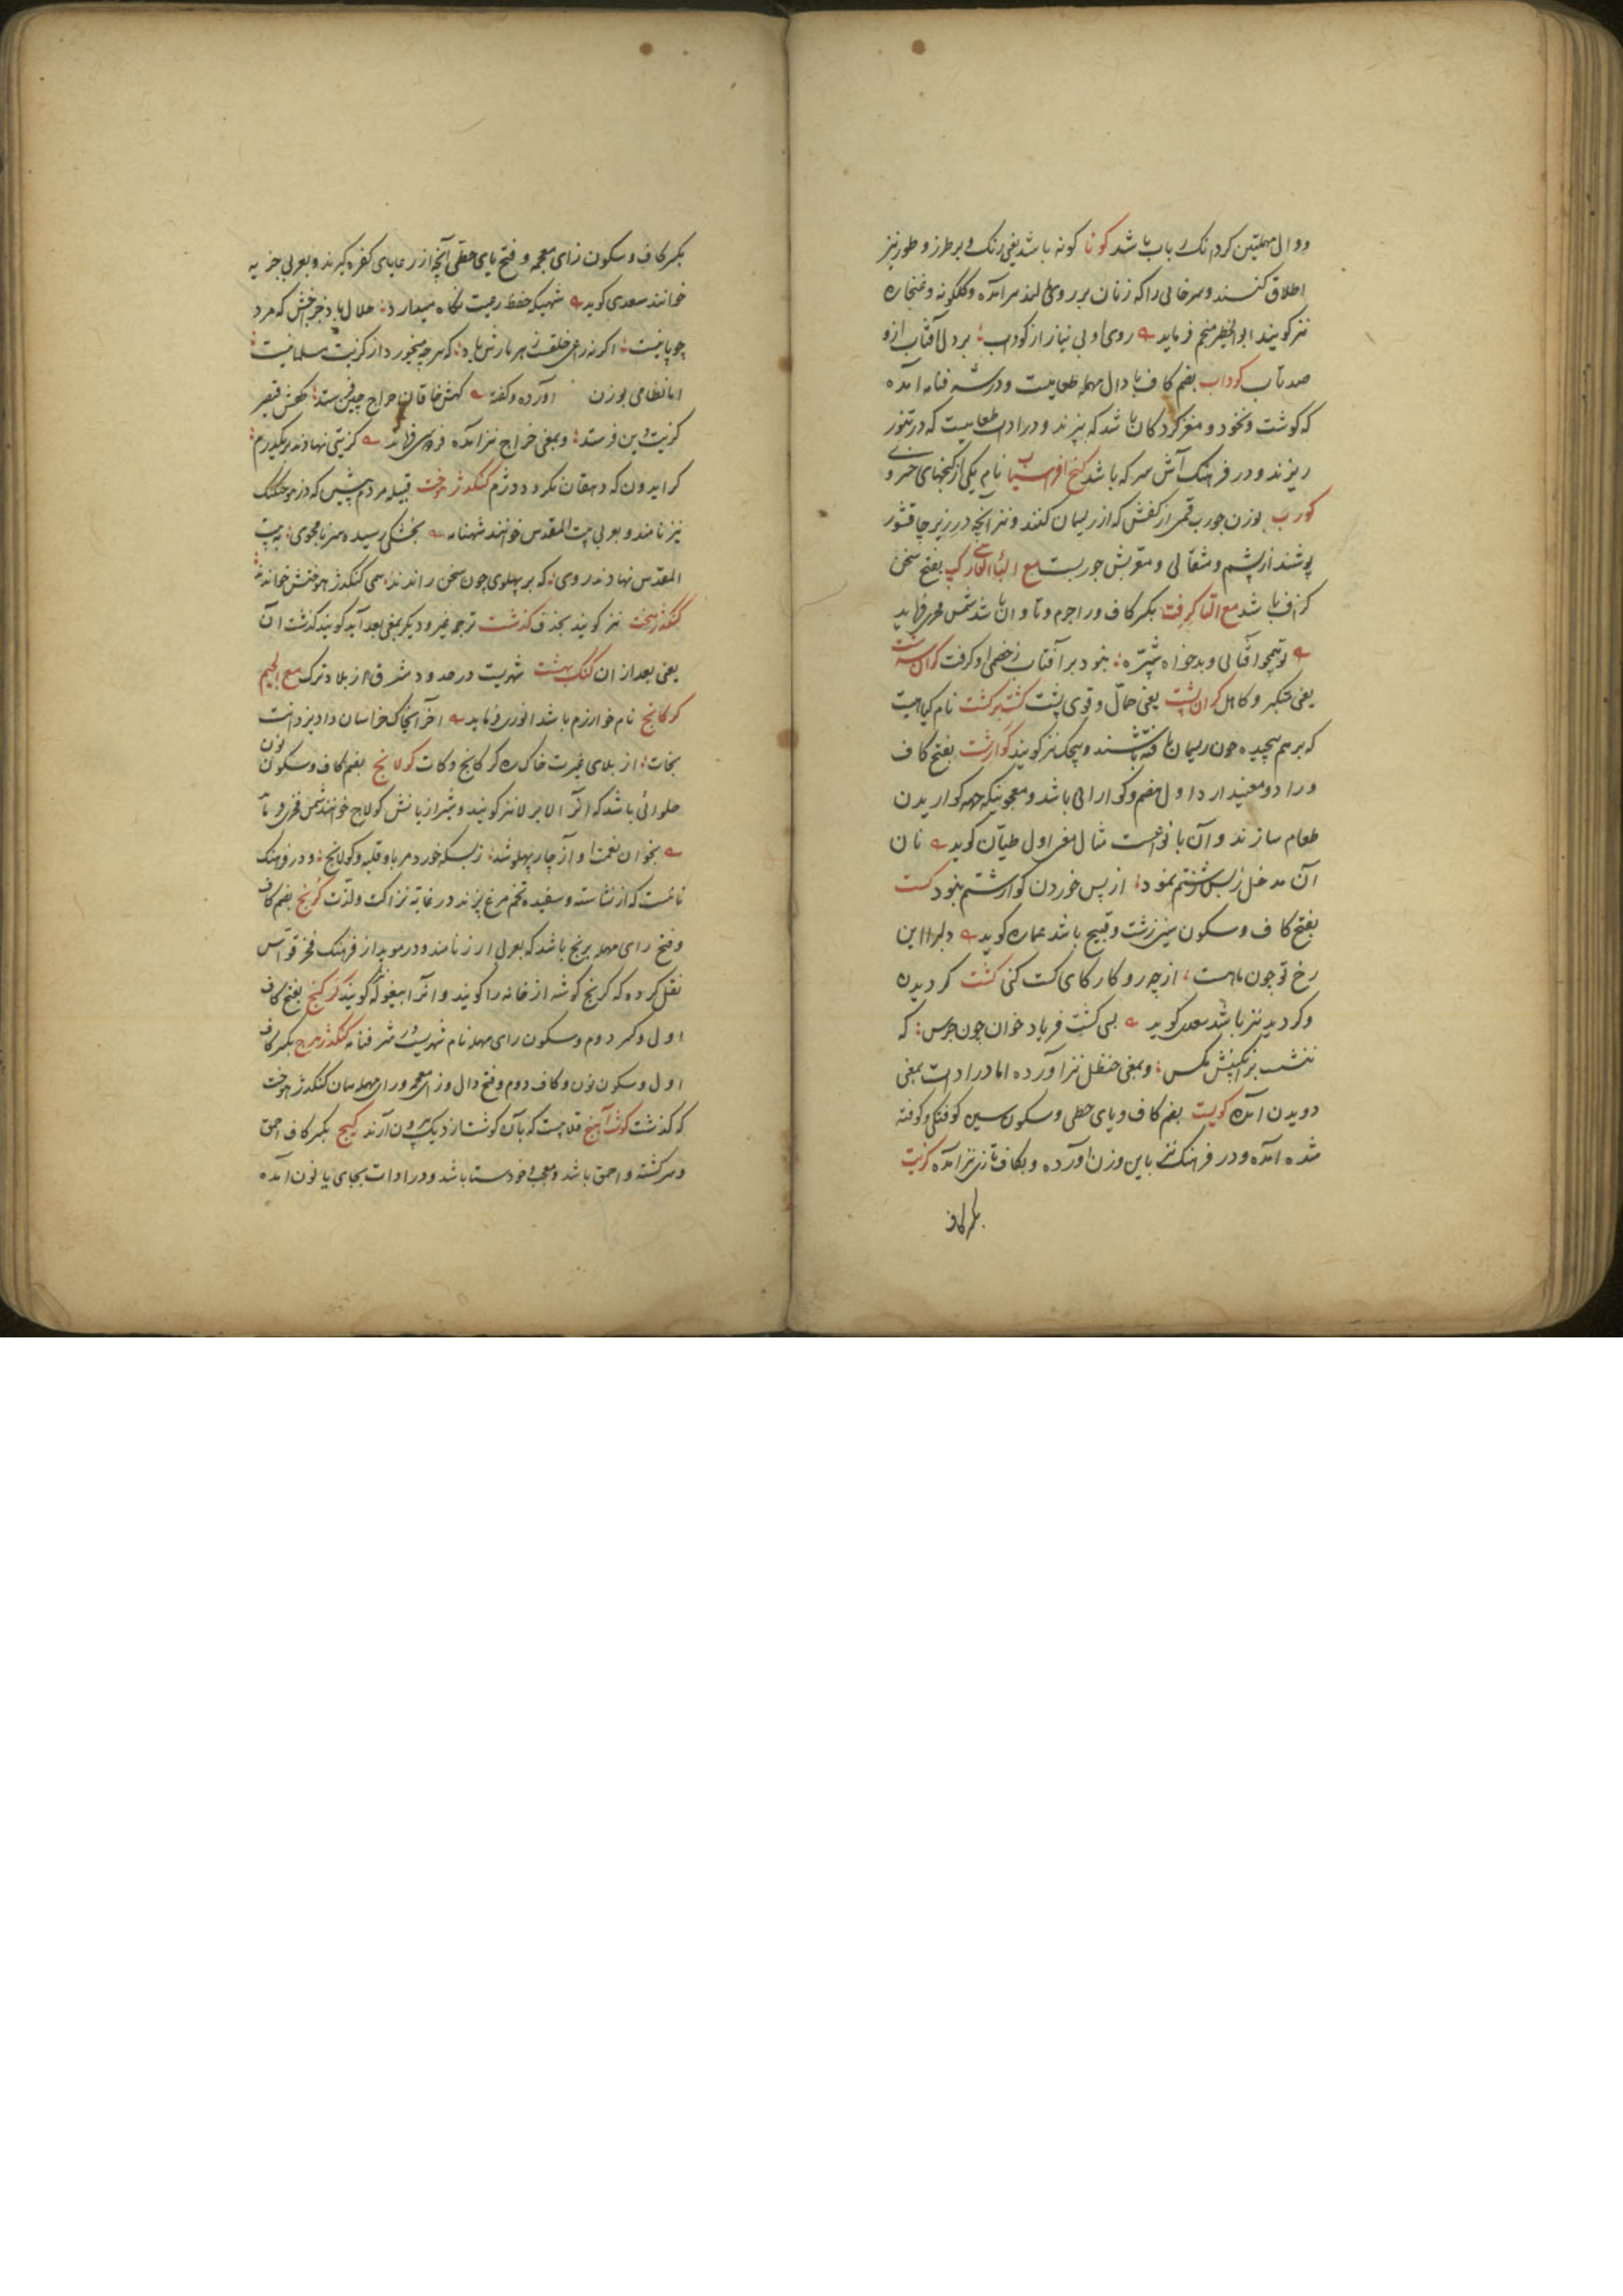 ودال مهملتین کردانک باب باشد کونا کونه باشد یعنی رنک و بر طرز و طور نیز
اطلاق کنند و سرخابی را که زنان بر روی مالند نیز آمده و کلکونه و غنجاره
نیز کویند ابو الخطیر منجم فرماید روی او بی نیاز از کوداب برد از آفتاب ازو
صد تاب کوداب بضم کاف با دال مهمله طعامیست و در شرفنامه آمده
که کوشت و نخود و مغز کردکان باشد که بپزند و در ادات طعامیست که در تنور
ریزند و در فرهنک آش سرکه باشد کنج افراسیاب نام یکی از کنجهای خسرو
کورب بوزن جورب قسمی از کفش که از ریسمان کنند و نیز آنچه در زیر چاقشور
پوشند از پشم و معربش جوربست مع الباء الفارسی کپ بفتح سخن
کزاف باشد مع التاء کرفت بکسر کاف و را جرم و تاوان باشد شمس فخری فرماید
تو همچو آفتابی و بدخواه شپره نبود بر آفتاب ز خصمی او کرفت کران سرشت
یعنی متکبر و کاهل کران پشت یعنی حمال و قوی پشت کشت بر کشت نام کیاهیست
که بر هم پیچیده چون ریسمان تافته باشند و پیچک نیز کویند کوارشت بفتح کاف
و را دو معنی دارد اول هضم و کوارایی باشد و معجونیکه جهة کواریدن
طعام سازند و آن با نوعست مثال معنی اول طیان کوید نان
آن مدخل ز بس زشتم نمود از پس خوردن کوارشتم نبود کست
بفتح کاف و سکون سین زشت و قبیح باشد عماره کوید دلبرا این
رخ تو چون ماهست از چه رو کارکای کست کنی کشت کردیدن
و کردید نیز باشد سعدی کوید بسی کشت فریاد خوان چون جرس که
ننشست بر انکبینش مکس و بمعنی حنظل نیز آورده اما در ادات بمعنی
دویدن آمده کویست بضم کاف و یای حطی و سکون سین کوفتکی و کوفته
شده آمده و در فرهنک نیز باین وزن آورده و بکاف تازی نیز آمده کزیت
بکسر کاف
بکسر کاف و سکون زای معجمه و فتح یای حطی آنچه از رعایای کفره کیرند و بعربی جزیه
خوانند سعدی کوید شهی که حفظ رعیت نکاه میدارد حلال باد خراجش که مزد
چوپانیست اکر نه راعی خلقست زهر مارش باد که هر چه میخورد از کزیت مسلمانیست
اما نظامی بوزن آورده و کفته کهش خاقان خراج چین فرستد کهش قیصر
کزیت دین فرستد و بمعنی خراج نیز آمده فردوسی فرماید کزیتی نهادند بر یکدرم
کر ایدون که دهقان نکردد دژم کنکدژ هوخت قبیله مردم پیش که دز هوخت کنک
نیز نامند و بعربی بیت المقدس خوانند شهنامه بخشکی رسیدند سر نامجوی به بیت
المقدس نهادند روی که بر پهلوی چون سخن راندند همی کنکدژ هوختش خواندند
کنکدژ هخت نیز کویند بحذف کذشت ترجمه غیر و دیکر بمعنی بعد آید کویند کذشت آن
یعنی بعد از آن کنک بهشت شهریست در حدود مشرق از بلاد ترک مع الجیم
کرکانج نام خوارزم باشد انوری فرماید آخر ای خاک خراسان داد یزدانت
نجات از بلای غیرت خاک ره کرکانج و کات کولانج بضم کاف و سکون نون
حلوائی باشد که آنرا لابرلا نیز کویند و شیرازیانش کولاج خوانند شمس فخری فرماید
بخوان نعمت او آز چار پهلو شد ز بسکه خورد مرباو قلیه و کولانج و در فرهنک
نانیست که از نشاسته و سفیده تخم مرغ پزند در غایة نزاکت و لذت کرنج بضم کاف
و فتح رای مهمله برنج باشد که بعربی ارز نامند و در موید از فرهنک فخر قواس
نقل کرده که کرنج کوشه از خانه را کویند و آنرا بیغوله نیز کویند کرکنج بفتح کاف
اول و کسر دوم و سکون رای مهمله نام شهریست در شرفنامه کنکدژ هرج بکسر کاف
اول و سکون نون و کاف دوم و فتح دال و زای معجمه و رای مهمله همان کنکدژ هوخت
که کذشت کوشت آهنج قلابیست که بآن کوشت از دیک بیرون آرند کیج بکسر کاف احمق
و سرکشته و احمق باشد و معجب و خودستا باشد و در ادات بجای یا نون آمده